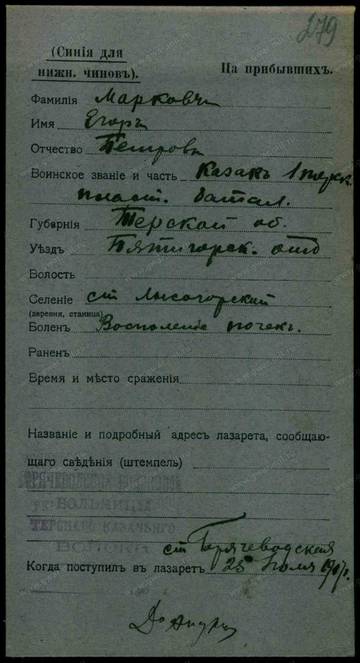 279
(Синія для
нижн. чиновъ).
На прибывшихъ.
Фамилія Марковъ
Имя Егоръ
Отчество Петровъ
Воинское званіе и часть Казакъ 1 терск.
пласт. батал.
Губернія Терской об.
Уѣздъ Пятигорск. отд
Волость
Селеніе ст Лысогорский
(деревня, станица)
Боленъ Воспаление почекъ
Раненъ
Время и мѣсто сраженія
Названіе и подробный адресъ лазарета, сообщаю-
щаго свѣдѣнія (штемпель)
БОЛЬНИЦЫ
ТЕРСКАГО КАЗАЧЬЯГО
ВОЙСКА
ст Горячеводская
Когда поступилъ въ лазаретъ 25